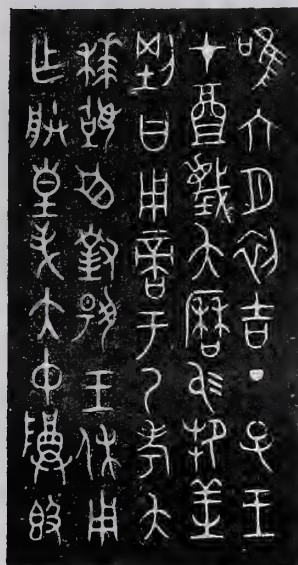 唯六月初吉丁巳王
才奠蔑大曆易芻騂
犅曰用啻于乃考大
拜𩒨首對揚王休用
乍朕皇考大中尊𣪘